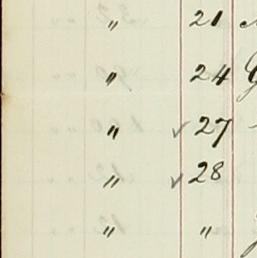 " 21
" 24
" ✓ 27
" ✓ 28
" "